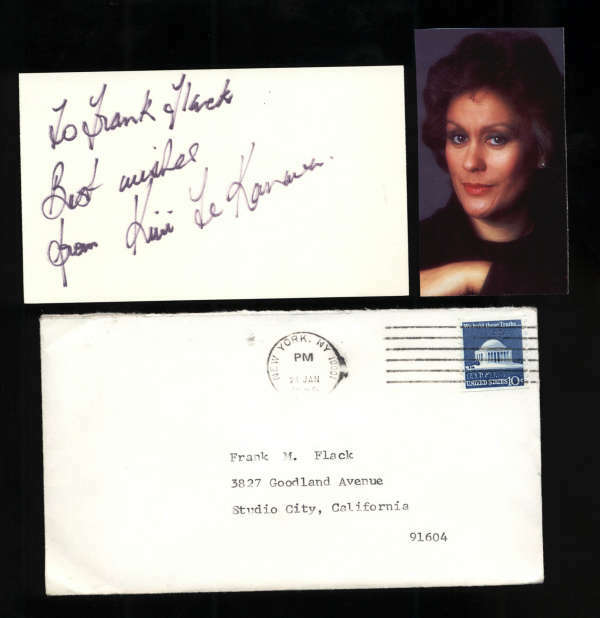 To Frank Flack
Best wishes
from Kiri Te Kanawa.
NEW YORK, NY
PM
JAN
We hold these Truths...
UNITED STATES 10c
Frank M. Flack
3827 Goodland Avenue
Studio City, California
91604